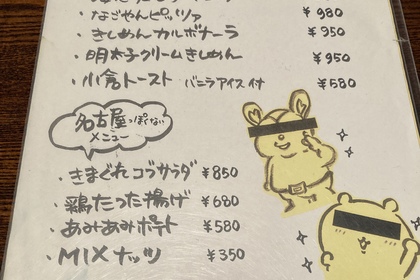 ・なごやんピッツァ ¥980
・きしめんカルボナーラ ¥950
・明太子クリームきしめん ¥950
・小倉トースト バニラアイス付 ¥580
名古屋っぽくない
メニュー
・きまぐれコブサラダ ¥850
・鶏たつた揚げ ¥680
・あみあみポテト ¥580
・MIXナッツ ¥350